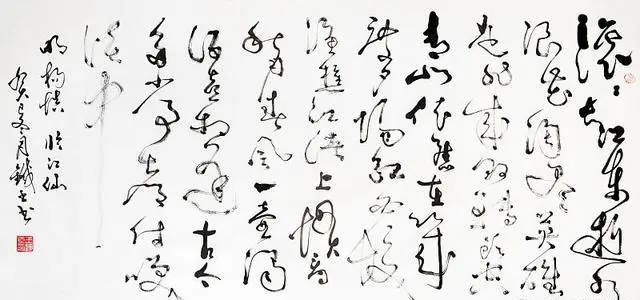 滚滚长江东逝水
浪花淘尽英雄
是非成败转头空
青山依旧在几
度夕阳红白发
渔樵江渚上惯看
秋月春风一壶浊
酒喜相逢古今
多少事都付笑
谈中
明杨慎 临江仙
癸 月 书